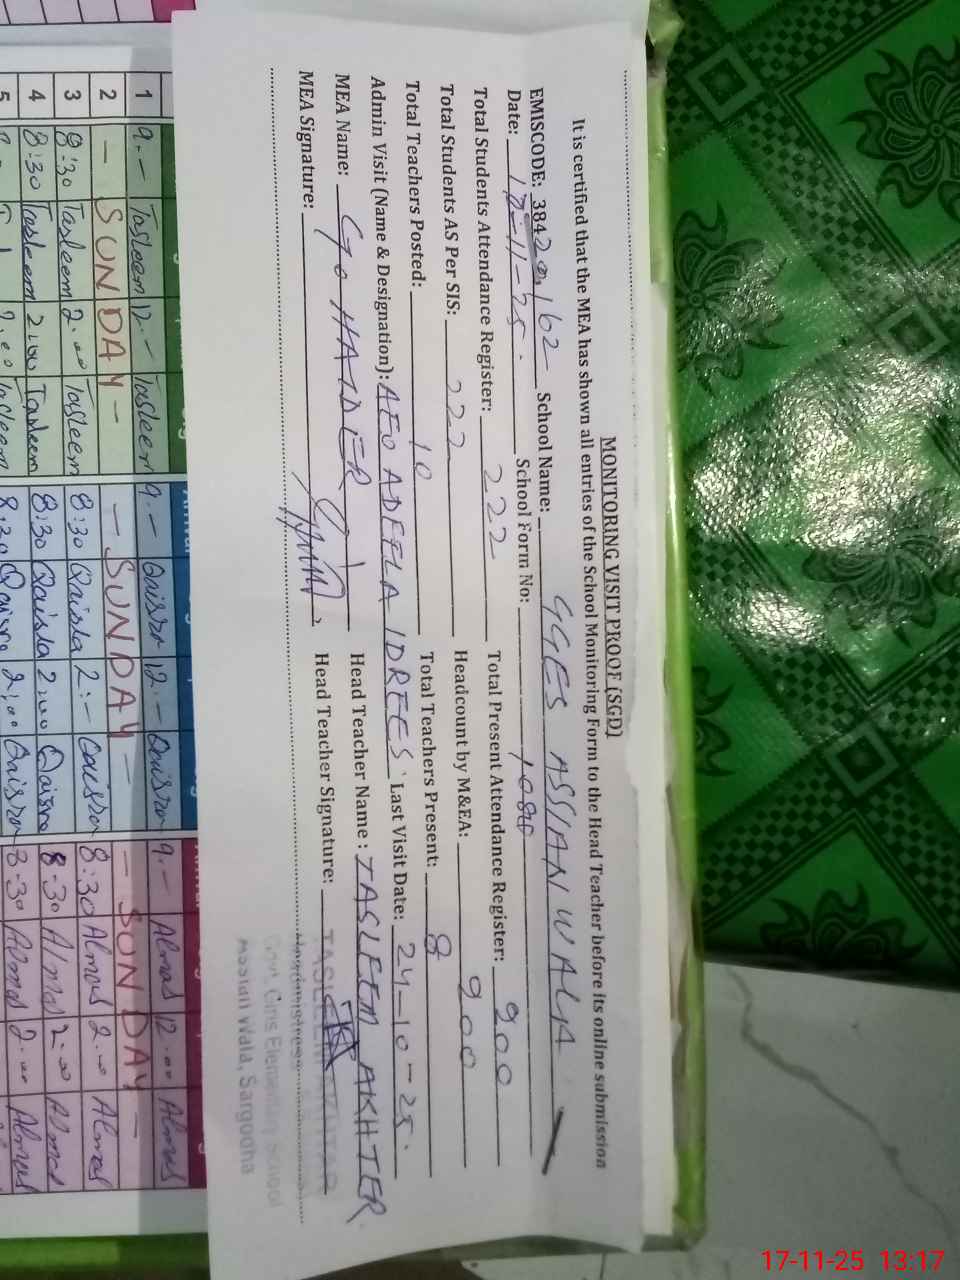 MONITORING VISIT PROOF (SGD)
It is certified that the MEA has shown all entries of the School Monitoring Form to the Head Teacher before its online submission
EMISCODE: 38420162 School Name: GGES ASSIANWALA
Date: 17-11-25. School Form No:
Total Students Attendance Register: 222 Total Present Attendance Register: 200
Total Students AS Per SIS: 222 Headcount by M&EA: 200
Total Teachers Posted: 10 Total Teachers Present: 8
Admin Visit (Name & Designation): AEO ADEELA IDREES. Last Visit Date: 24-10-25.
MEA Name: HAIDER Head Teacher Name : TASLEEM AKHTER.
MEA Signature: Head Teacher Signature:
TASLEEM AKHTAR
Headmistress
Govt. Girls Elementary School
Assian Wala, Sargodha
1 9.- Tasleem 12.- Tasleem 9.- 12.- 9.- Almas 12.00 Almas
2 - SUNDAY - - SUNDAY - - SUNDAY -
3 8:30 Tasleem 2.00 Tasleem 8:30 2:- 8:30 Almas 2.00 Almas
4 8:30 Tasleem 2:00 Tasleem 8:30 2:00 8:30 Almas 2:00 Almas
5 8:30 2:00 8:30 Almas 2:00 Almas
17-11-25 13:17